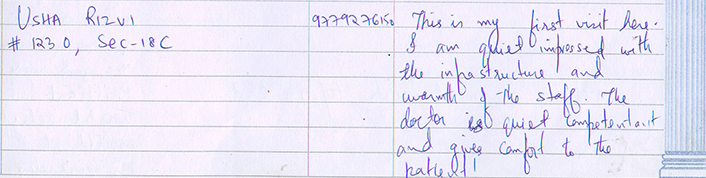 USHA RIZVI
# 1230, Sec-18C
9779276150
This is my first visit here.
I am quiet impressed with
the infrastructure and
warmth of the staff. The
doctor is quiet Competentant
and gives Comfort to the
patient!